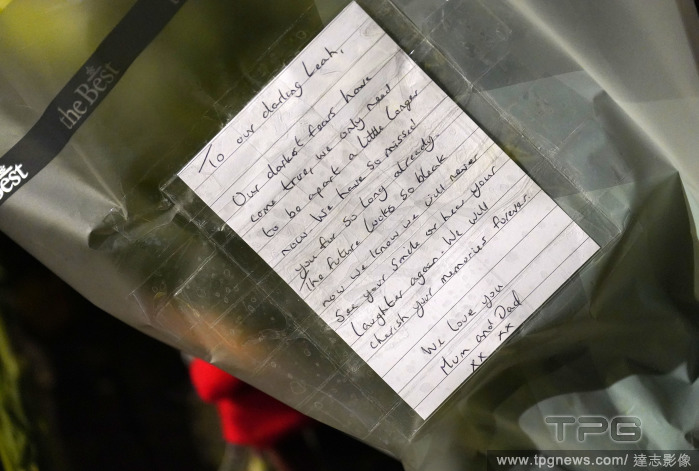 the Best
Best
To our darling Leah,
Our darkest fears have
come true, we only need
to be apart a little longer
now. We have so missed
you for so long already.
The future looks so bleak
now we know we will never
see your smile or hear your
laughter again. We will
cherish your memories forever.
We love you
Mum and Dad
xx xx
TPG
www.tpgnews.com/達志影像